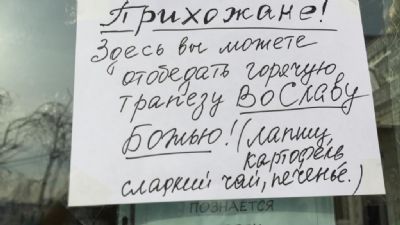 Прихожане!
Здесь вы можете
отобедать горячую
трапезу Во Славу
Божью! (лапшу,
картофель
сладкий чай, печенье.)
ПОЗНАЕТСЯ